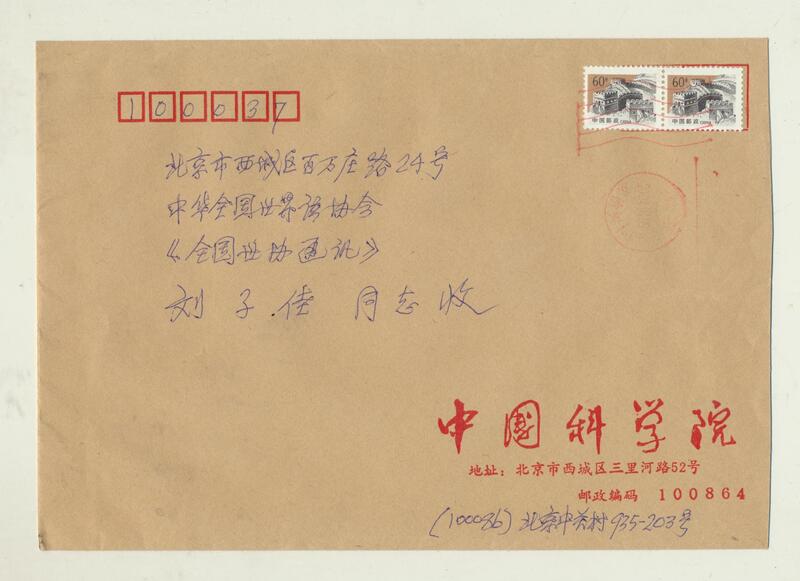 100037
60分 60分
中国邮政 中国邮政
北京市西城区百万庄路24号
中华全国世界语协会
《全国世协通讯》
刘子佳 同志收
中国科学院
地址：北京市西城区三里河路52号
邮政编码 100864
(100086) 北京中关村935-203号